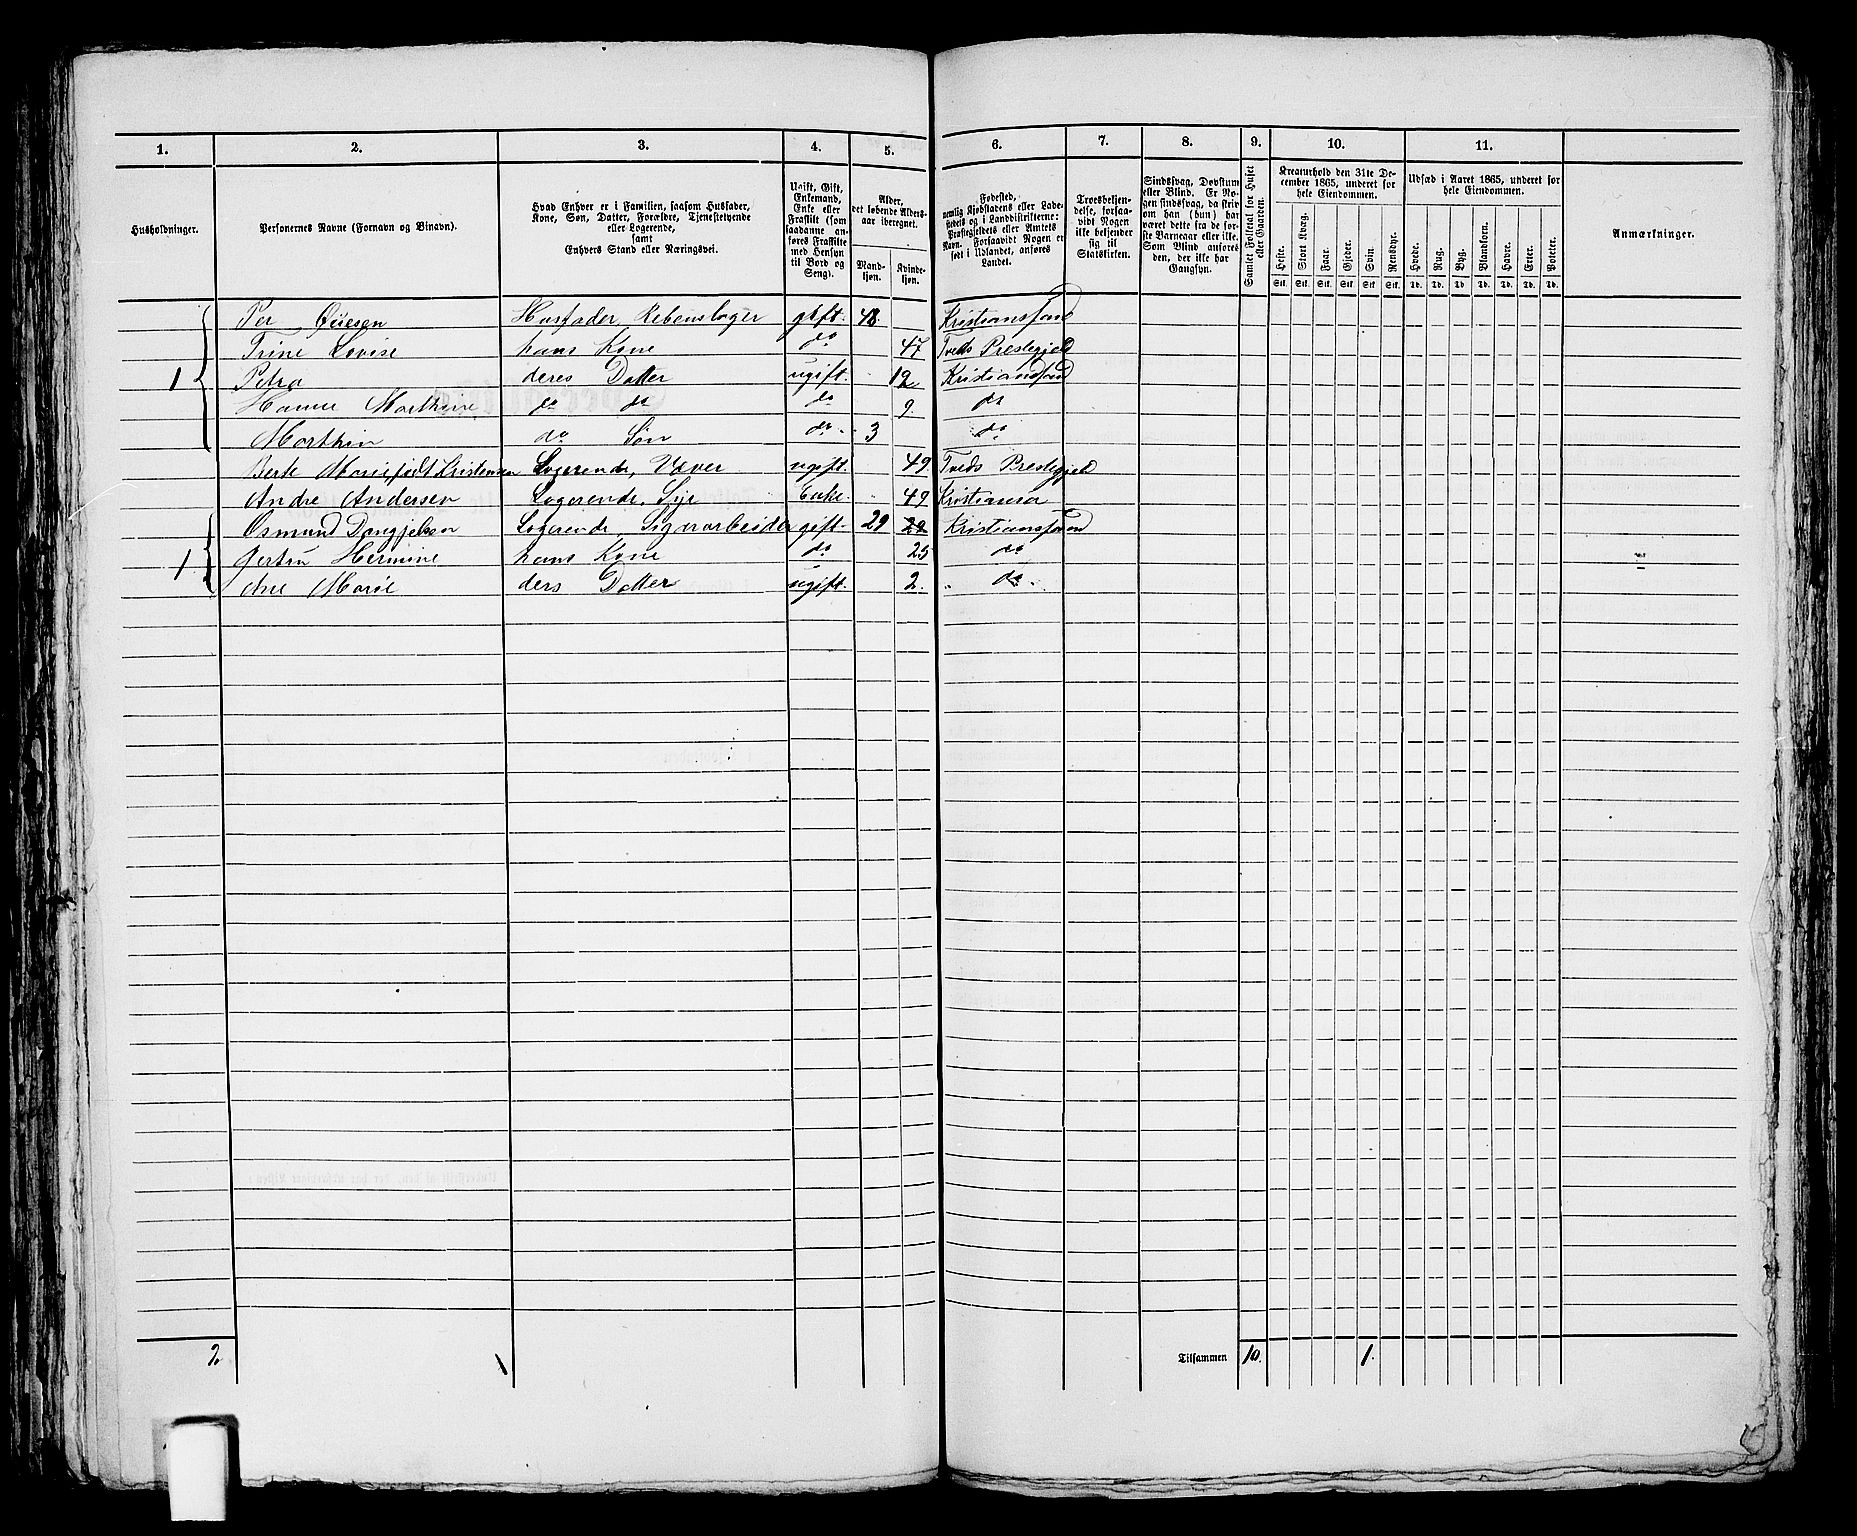 1. 2. 3. 4. 5. 6. 7. 8. 9. 10. 11.
Husholdninger.
Personernes Navne (Fornavn og Binavn).
Hvad Enhver er i Familien, saasom Husfader,
Kone, Søn, Datter, Forældre, Tjenestetyende
eller Logerende,
samt
Enhvers Stand eller Næringsvei.
Ugift, Gift,
Enkemand,
Enke eller
Fraskilt (som
saadanne an-
føres Fraskilte
med Hensyn
til Bord og
Seng).
Alder,
det løbende Alders-
aar iberegnet.
Mand-
kjøn.
Kvinde-
kjøn.
Fødested,
nemlig Kjøbstadens eller Lade-
stedets og i Landdistrikterne:
Præstegjeldets eller Amtets
Navn. Forsaavidt Nogen er
født i Udlandet, anføres
Landet.
Troesbekjen-
delse, forsaa-
vidt Nogen
ikke bekjender
sig til
Statskirken.
Sindssvag, Døvstum
eller Blind. Er No-
gen sindssvag, da skriv
om han (hun) har
været dette fra de før-
ste Barneaar eller ikke.
Som Blind anføres
den, der ikke har
Gangsyn.
Samlet Folketal for Huset
eller Gaarden.
Kreaturhold den 31te De-
cember 1865, underet for
hele Eiendommen.
Heste. Stort Kvæg. Faar. Gjeder. Svin. Rensdyr.
Stk. Stk. Stk. Stk. Stk. Stk.
Udsæd i Aaret 1865, underet for
hele Eiendommen.
Hvede. Rug. Byg. Blandkorn. Havre. Erter. Poteter.
Td. Td. Td. Td. Td. Td. Td.
Anmærkninger.
Per Husfader Rebenslager gift. 48. Kristiansand
Trine Lovise hans Kone do 47 Tveds Prestegjeld
1 Petra deres Datter ugift. 12 Kristiansand
Hanne Marthine do do do 9. do
Marthin do Søn do 3 do
Berte Marie født Kristensen Logerende, Væver ugift. 49. Tveds Prestegjeld
Andre Andersen Logerende, Sye Enke. 49
Osmund Logerende Sigararbeider gift. 29 22 Kristiansand
1 Hermine hans Kone do 25 do
Ane Marie ders Datter ugift. 2. do
2. Tilsammen 10. 1.